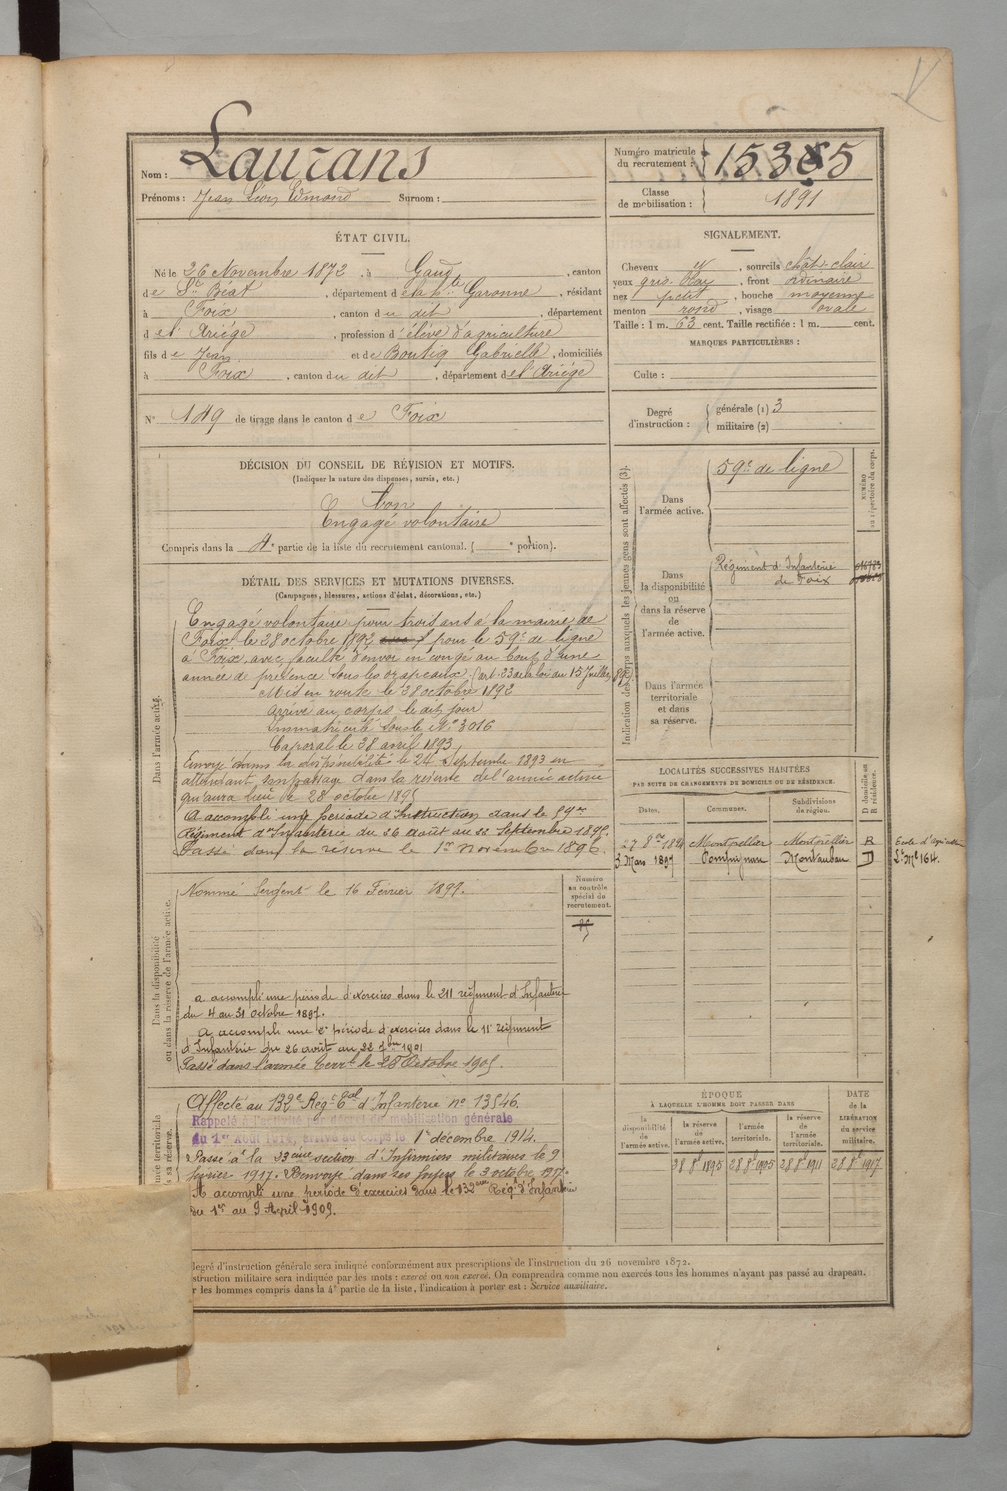 Nom : Laurans
Prénoms : Jean Léon Edmond Surnom :
Numéro matricule du recrutement : 15385
Classe de mobilisation : 1891
ÉTAT CIVIL.
Né le 26 Novembre 1872, à Gaud, canton
de St Béat, département de la hte Garonne, résidant
à Foix, canton du dit, département
de l'Ariège, profession d'élève d'agriculture
fils de Jean et de Boutig Gabrielle, domiciliés
à Foix, canton du dit, département de l'Ariège
N° 149 de tirage dans le canton de Foix
SIGNALEMENT.
Cheveux et, sourcils chât clair
yeux gris, front ordinaire
nez petit, bouche moyenne
menton rond, visage ovale
Taille : 1 m. 63 cent. Taille rectifiée : 1 m. cent.
MARQUES PARTICULIÈRES :
Culte :
Degré d'instruction : générale (1) 3
militaire (2)
DÉCISION DU CONSEIL DE RÉVISION ET MOTIFS.
(Indiquer la nature des dispenses, sursis, etc.)
bon
Engagé volontaire
Compris dans la 4e partie de la liste du recrutement cantonal. ( e portion).
DÉTAIL DES SERVICES ET MUTATIONS DIVERSES.
(Campagnes, blessures, actions d'éclat, décorations, etc.)
Dans l'armée active.
Engagé volontaire pour trois ans à la mairie de
Foix le 28 octobre 1892 pour le 59e de ligne
à Foix, avec faculté d'envoi en congé au bout d'une
année de présence sous les drapeaux. (art. 23 de la loi du 15 Juillet 89)
Mis en route le 28 octobre 1892
Arrivé au corps le dit jour
Immatriculé sous le N° 3016
Caporal le 28 avril 1893,
Envoyé dans la disponibilité le 24 septembre 1893 en
attendant son passage dans la réserve de l'armée active
qui aura lieu le 28 octobre 1895
A accompli une période d'Instruction dans le 59me
Régiment d'Infanterie du 26 Août au 22 Septembre 1895.
Passé dans la réserve le 1er Novembre 1895.
Dans la disponibilité
ou dans la réserve de l'armée active.
Numéro au contrôle spécial du recrutement.
Nommé Sergent le 16 Février 1897.
a accompli une période d'exercices dans le 211 régiment d'Infanterie
du 4 au 31 octobre 1897.
A accompli une 2e période d'exercices dans le 11e régiment
d'Infanterie du 26 août au 22 7bre 1901
Passé dans l'armée terrle le 28 Octobre 1905.
Affecté au 132e Régt Eal d'Infanterie no 13546.
Rappelé à l'activité par décret de mobilisation générale
du 1er Août 1914, arrivé au Corps le 1er décembre 1914.
Passé à la 23ème section d'Infirmiers militaires le 9
février 1917. Renvoyé dans ses foyers le 3 octobre 1917.
A accompli une période d'exercices dans le 132me Régt d'Infanterie
du 1er au 9 Avril 1909.
Indication des corps auxquels les jeunes gens sont affectés (3).
NUMÉRO au répertoire du corps.
Dans l'armée active.
59e de ligne
Dans la disponibilité ou dans la réserve de l'armée active.
Régiment d'Infanterie
de Foix
Dans l'armée territoriale et dans sa réserve.
LOCALITÉS SUCCESSIVES HABITÉES
PAR SUITE DE CHANGEMENTS DE DOMICILE OU DE RÉSIDENCE.
Dates. Communes. Subdivisions de région. D domicile ou R résidence.
27 8bre 1894 Montpellier Montpellier R
3 Mars 1897 Compignan Montauban D
ÉPOQUE
À LAQUELLE L'HOMME DOIT PASSER DANS
la disponibilité de l'armée active. la réserve de l'armée active. l'armée territoriale. la réserve de l'armée territoriale.
DATE de la LIBÉRATION du service militaire.
28 8e 1895 28 8e 1905 28 8e 1911 28 8e 1917
degré d'instruction générale sera indiqué conformément aux prescriptions de l'instruction du 26 novembre 1872.
struction militaire sera indiquée par les mots : exercé ou non exercé. On comprendra comme non exercés tous les hommes n'ayant pas passé au drapeau.
r les hommes compris dans la 4e partie de la liste, l'indication à porter est : Service auxiliaire.